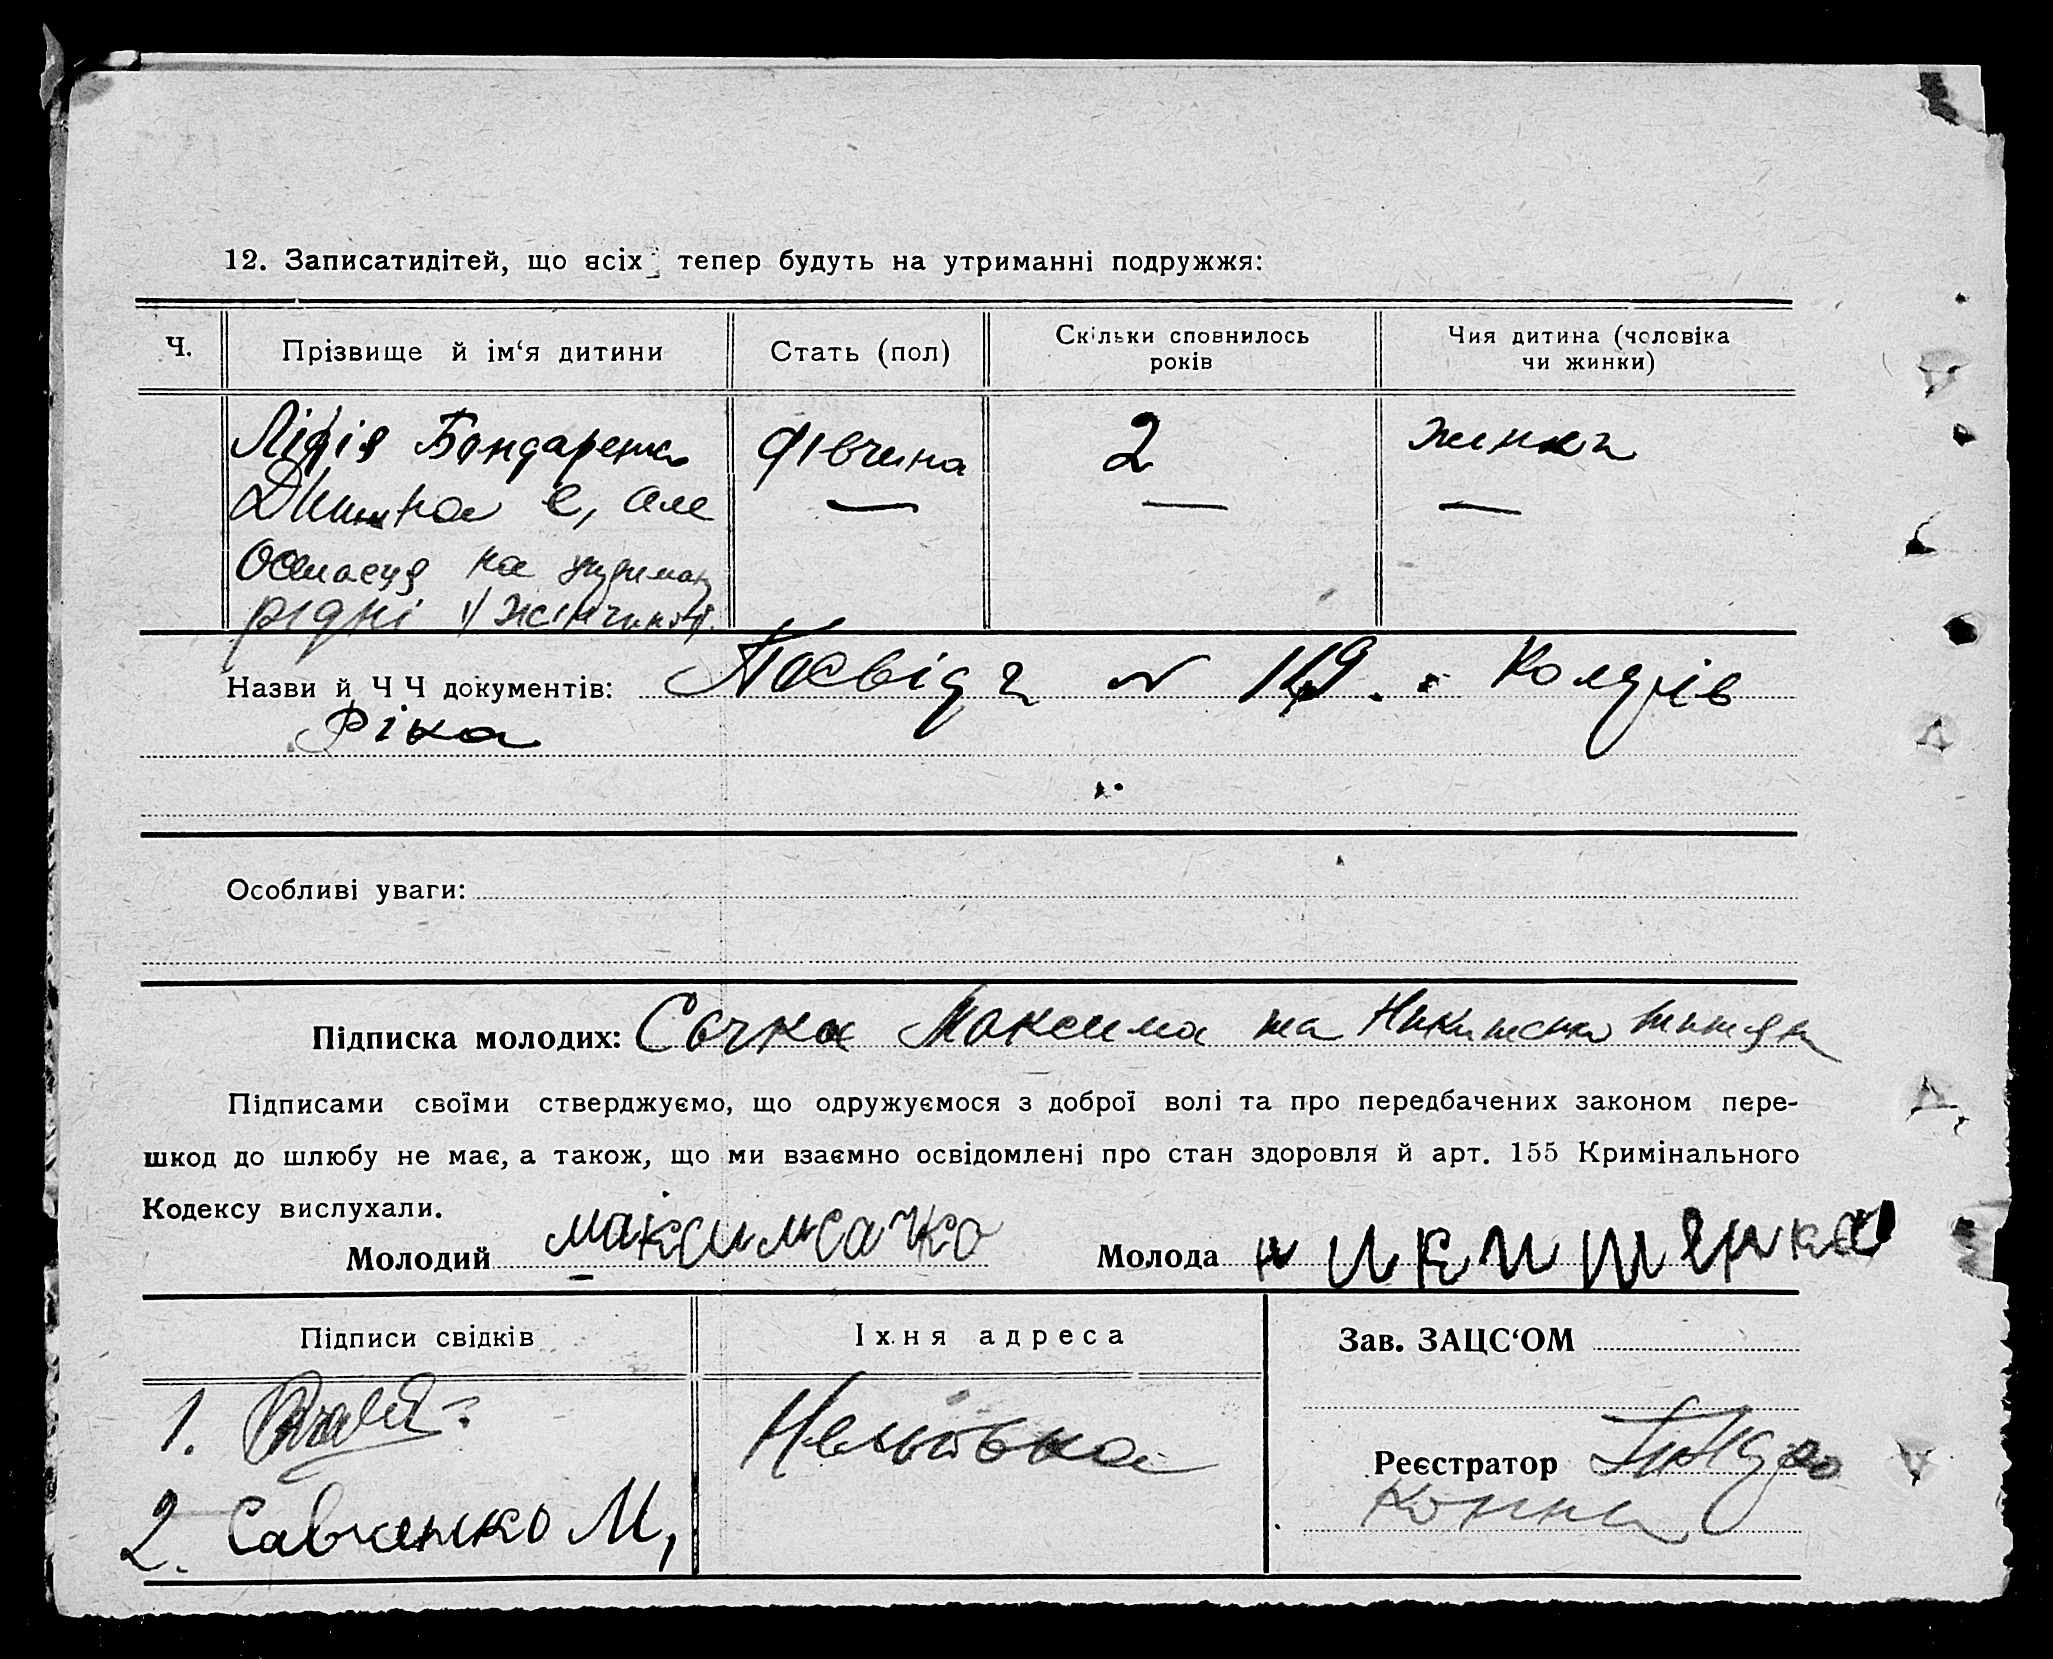 12. Записатидітей, що всіх тепер будуть на утриманні подружжя:
Ч.
Прізвище й ім‘я дитини
Стать (пол)
Скільки сповнилось
років
Чия дитина (чоловіка
чи жинки)
Лідія Бондаренко дівчина 2 жинки
Дитина є, але — — —
осталася на
рідні жінчиній.
Назви й Ч Ч документів: Посвідч N 149. Колядів
ріка
Особливі уваги:
Підписка молодих: Сочка Максима та Никитенко
Підписами своїми стверджуємо, що одружуємося з доброї волі та про передбачених законом пере-
шкод до шлюбу не має, а також, що ми взаємно освідомлені про стан здоровля й арт. 155 Кримінального
Кодексу вислухали.
Молодий максим сачко Молода никитянка
Підписи свідків
Їх.ня адреса
Зав. ЗАЦС‘ОМ
1.
2. Савченко М,
Реєстратор